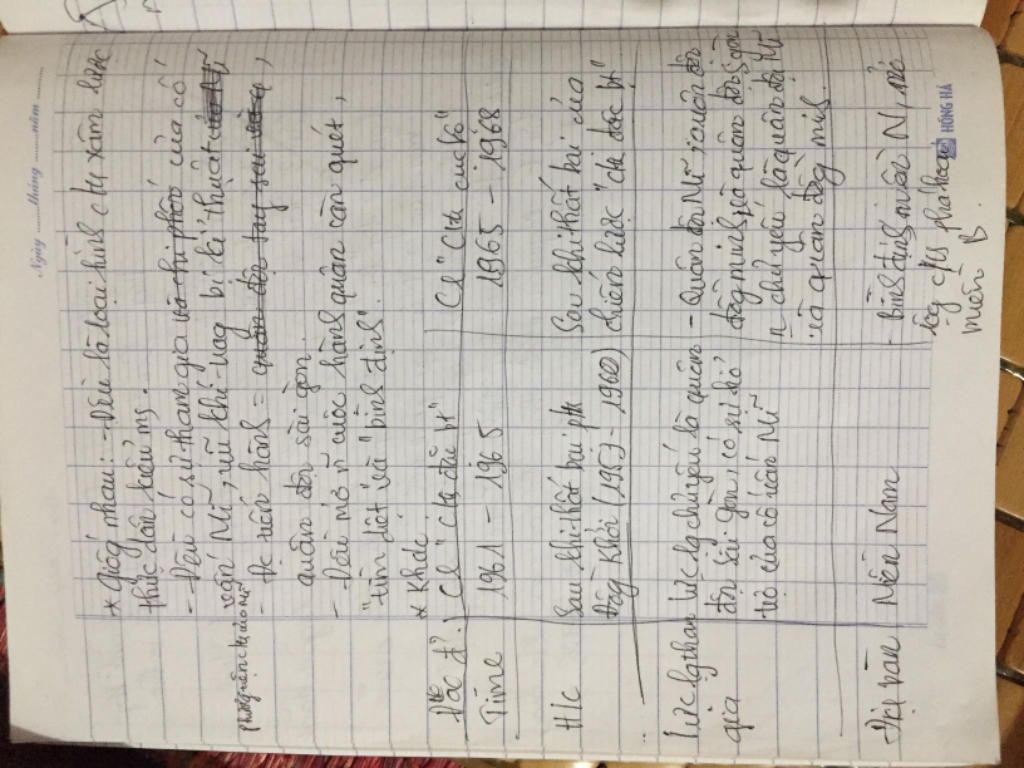 Ngày ........ tháng ........ năm ........
* Giống nhau: - Đều là loại hình ctr xâm lược
thực dân kiểu ms.
- Đều có sự tham gia và chi phối của cố
vấn Mĩ, vũ khí trag bị kĩ thuật
phương tiện ctr của Mĩ
- Tiến hành = quân đội tay sai
quân đội Sài gòn.
- Đều mở n̄ cuộc hành quân càn quét,
"tìm diệt" và "bình định"
* Khác
Đặc đ? | CL "Ctr đặc bt" | CL "Ctr cuc bộ"
Time | 1961 - 1965 | 1965 - 1968
H/c | Sau khi thất bại ptr | Sau khi thất bại của
Đồng Khởi (1959 - 1960) | chiến lược "ctr đặc bt"
Lực lg tham | Lực lg chủ yếu là quân | - Quân đội Mĩ, quân đội
gia | đội Sài gòn, có sự hỗ | đồng minh và quân đội Sài gòn
trợ của cố vấn Mĩ | chủ yếu là quân đội Mĩ
và quân đồng minh.
Địa bàn | Miền Nam | bình định miền N, mở
rộng ctr phá hoại
miền B.
HỒNG HÀ